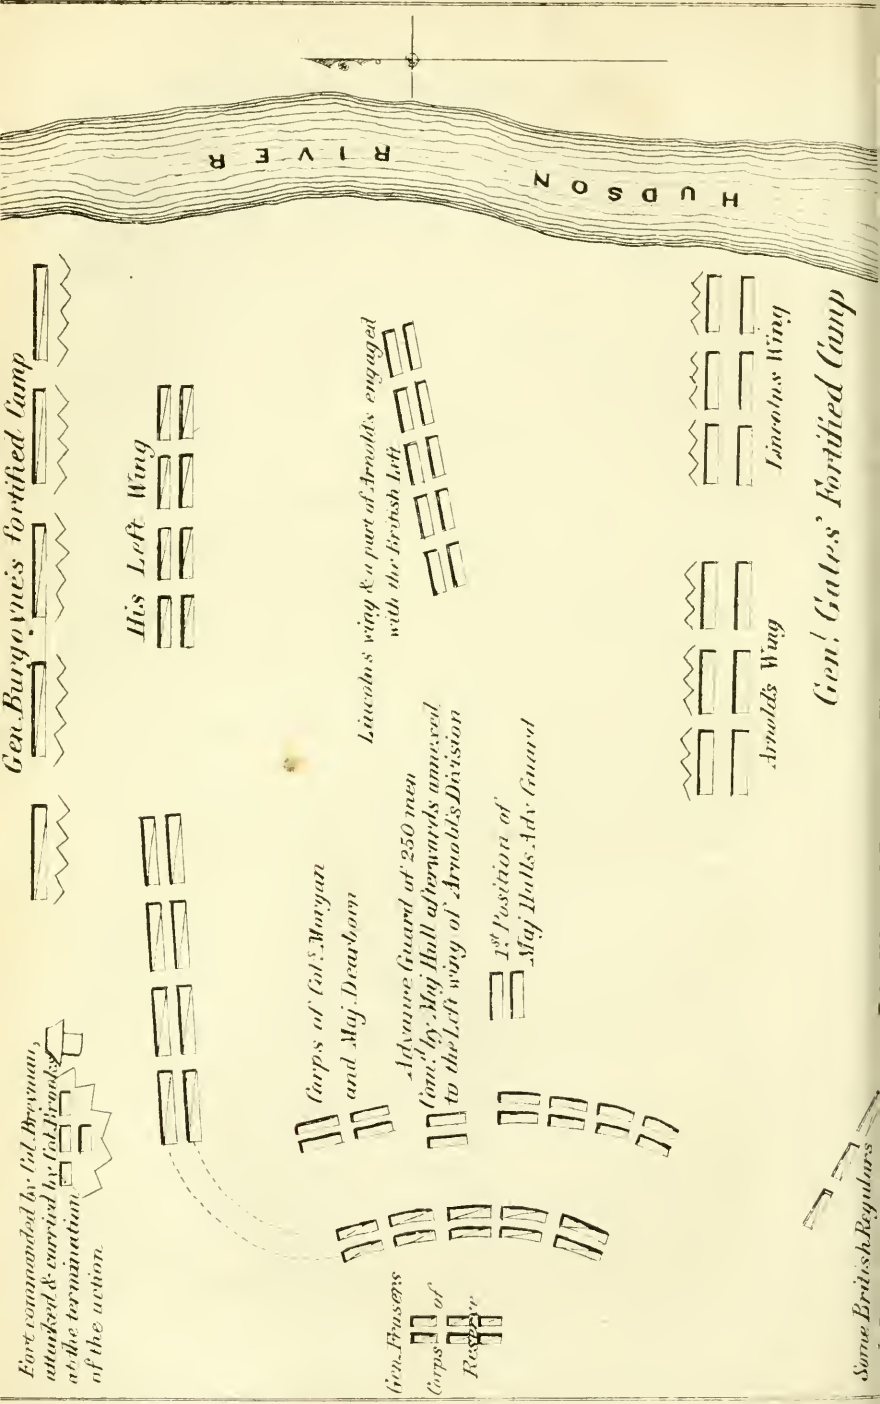 HUDSON RIVER
Gen. Burgoyne's fortified Camp
His Left Wing
Lincoln's wing & a part of Arnold's engaged
with the British Left
Lincoln's Wing
Arnold's Wing
Gen.l Gates' Fortified Camp
Fort commanded by Col. Breyman,
attacked & carried by Col. Brooks
at the termination
of the action
Corps of Col.s Morgan
and Maj. Dearborn
Advance Guard of 250 men
Com.d by Maj Hull afterwards annexed
to the Left wing of Arnold's Division
1st Position of
Maj Hulls Adv Guard
Gen. Frasers
Corps of
Reserve
Some British Regulars